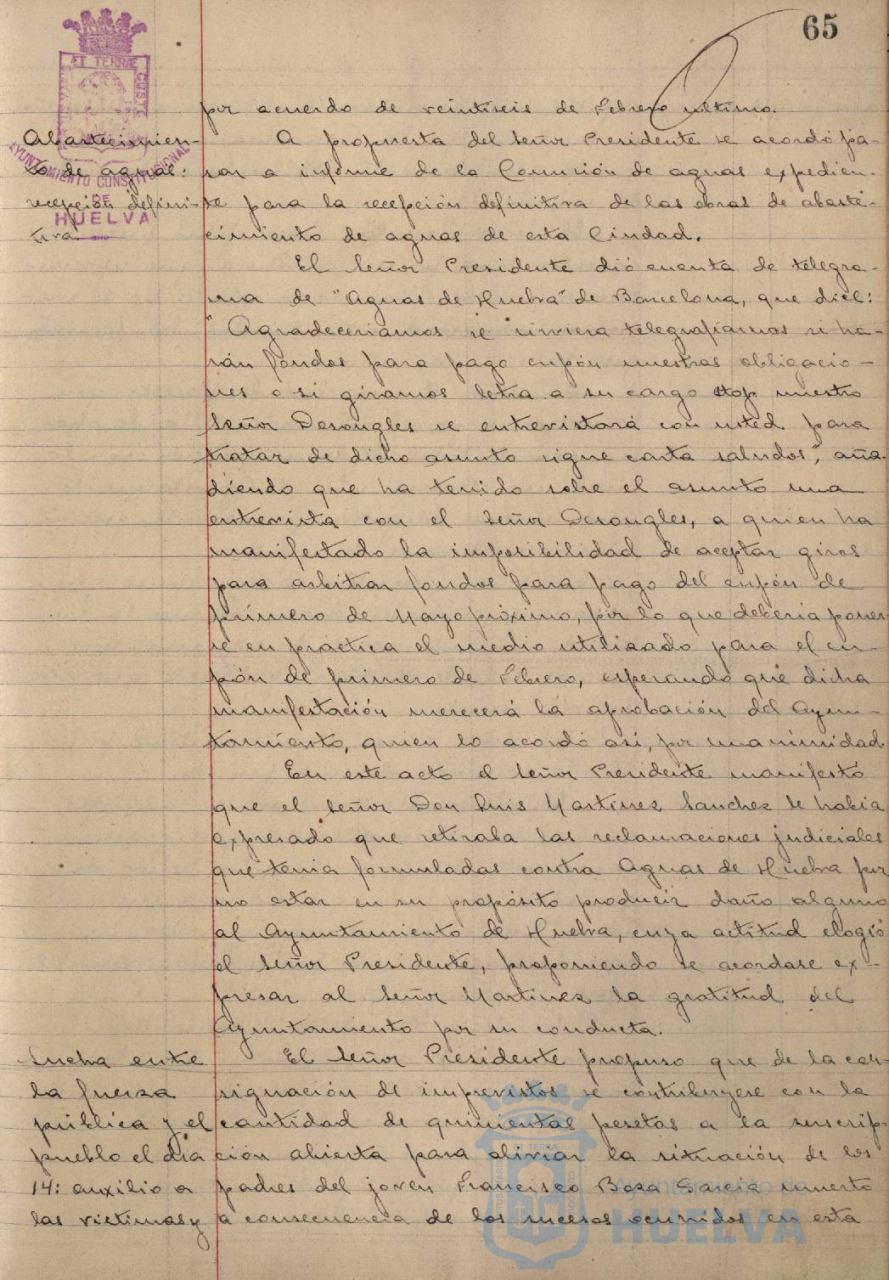 65
ET TERRÆ CUSTO
AYUNTAMIENTO CONSTITUCIONAL
DE
HUELVA
por acuerdo de veintiseis de Febrero ultimo.
Abastecimien-
to de aguas:
recepción defini-
tiva
A propuesta del Señor Presidente se acordó pa-
sar a informe de la Comisión de aguas expedien-
te para la recepción definitiva de las obras de abaste-
cimiento de aguas de esta Ciudad.
El Señor Presidente dió cuenta de telegra-
ma de "Aguas de Huelva" de Barcelona, que dice:
"Agradeceriamos se sirviera telegrafiarnos si ha-
rán fondos para pago cupón nuestras obligacio-
nes o si giramos letra a su cargo stop nuestro
Señor Desongles se entrevistará con usted para
tratar de dicho asunto sigue carta saludos", aña-
diendo que ha tenido sobre el asunto una
entrevista con el Señor Desongles, a quien ha
manifestado la imposibilidad de aceptar giros
para arbitrar fondos para pago del cupón de
primero de Mayo próximo, por lo que deberia poner-
se en práctica el medio utilizado para el cu-
pón de primero de Febrero, esperando que dicha
manifestación merecerá la aprobación del Ayun-
tamiento, quien lo acordó asi, por unanimidad.
En este acto el Señor Presidente manifestó
que el Señor Don Luis Martinez Sanchez le habia
expresado que retiraba las reclamaciones judiciales
que tenia formuladas contra Aguas de Huelva por
no estar en su propósito producir daño alguno
al Ayuntamiento de Huelva, cuya actitud elogió
el Señor Presidente, proponiendo se acordase ex-
presar al Señor Martinez la gratitud del
Ayuntamiento por su conducta.
Lucha entre
la fuerza
pública y el
pueblo el dia
14: auxilio a
las victimas y
El Señor Presidente propuso que de la con-
signación de imprevistos se contribuyese con la
cantidad de quinientas pesetas a la suscrip-
ción abierta para aliviar la situación de los
padres del joven Francisco Boza Garcia muerto
a consecuencia de los sucesos ocurridos en esta
Ayuntamiento de
HUELVA